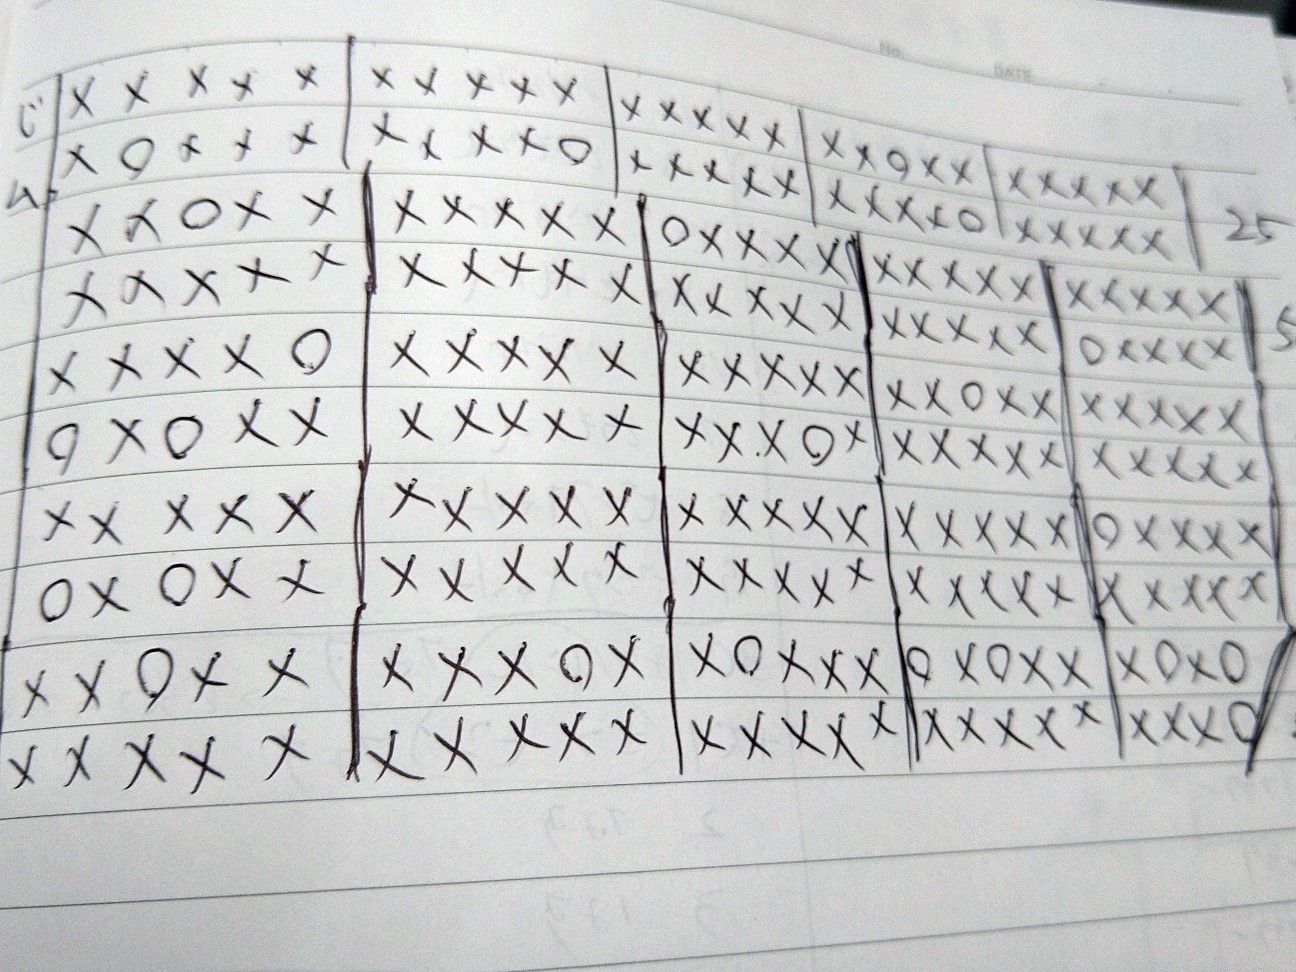 No.
DATE
じ x x x x x | x x x x x | x x x x x | x x o x x | x x x x x |
x o x x x | x x x x o | x x x x x | x x x x o | x x x x x | 25
x x o x x | x x x x x | o x x x x | x x x x x | x x x x x |
x x x x x | x x x x x | x x x x x | x x x x x | o x x x x | 5
x x x x o | x x x x x | x x x x x | x x o x x | x x x x x |
o x o x x | x x x x x | x x x o x | x x x x x | x x x x x |
x x x x x | x x x x x | x x x x x | x x x x x | o x x x x |
o x o x x | x x x x x | x x x x x | x x x x x | x x x x x |
x x o x x | x x x o x | x o x x x | o x o x x | x o x o
x x x x x | x x x x x | x x x x x | x x x x x | x x x o